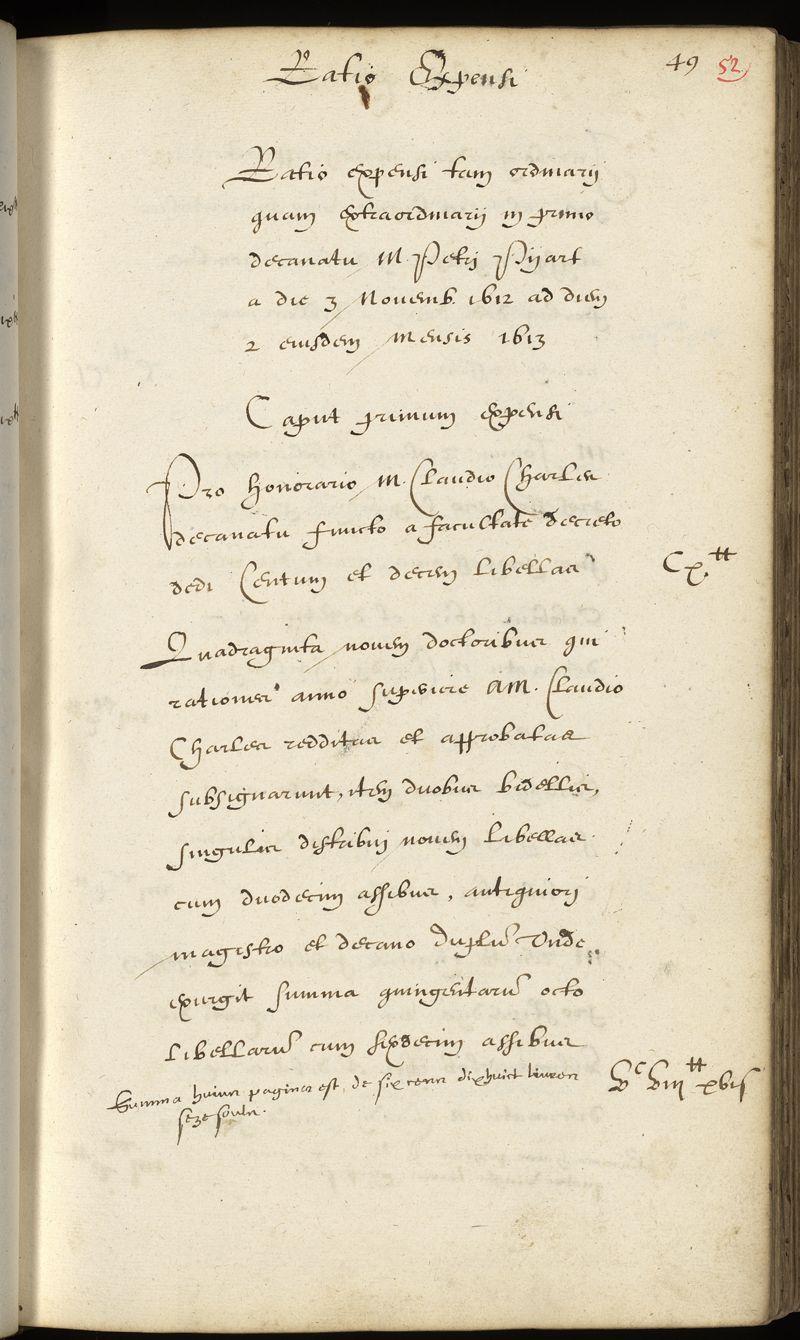 Ratio Expensi
49 52
Ratio expensi tam ordinarij
quam extraordinarij in primo
decanatu M. Petrj Pijart
a die 3 Novemb. 1612 ad diem
2 eiusdem Mensis 1613
Caput primum expensi
Pro honorario M. Claudio Charles
decanatu functo a facultate decreto
dedi Centum et decem libellas Cx.tt
Quadraginta novem doctoribus qui
rationes anno superiore a M. Claudio
Charles redditas et approbatas
subsignarunt, item duobus bidellis,
singulis distribuj novem libellas
cum duodecim assibus, antiquiorj
magistro et decano duplũ Unde
exurgit summa quingentarũ octo
libellarũ cum sexdecim assibus
Summa huius paginæ est, de six cens dixhuict livres VC Viijtt xvis
seze soulz.